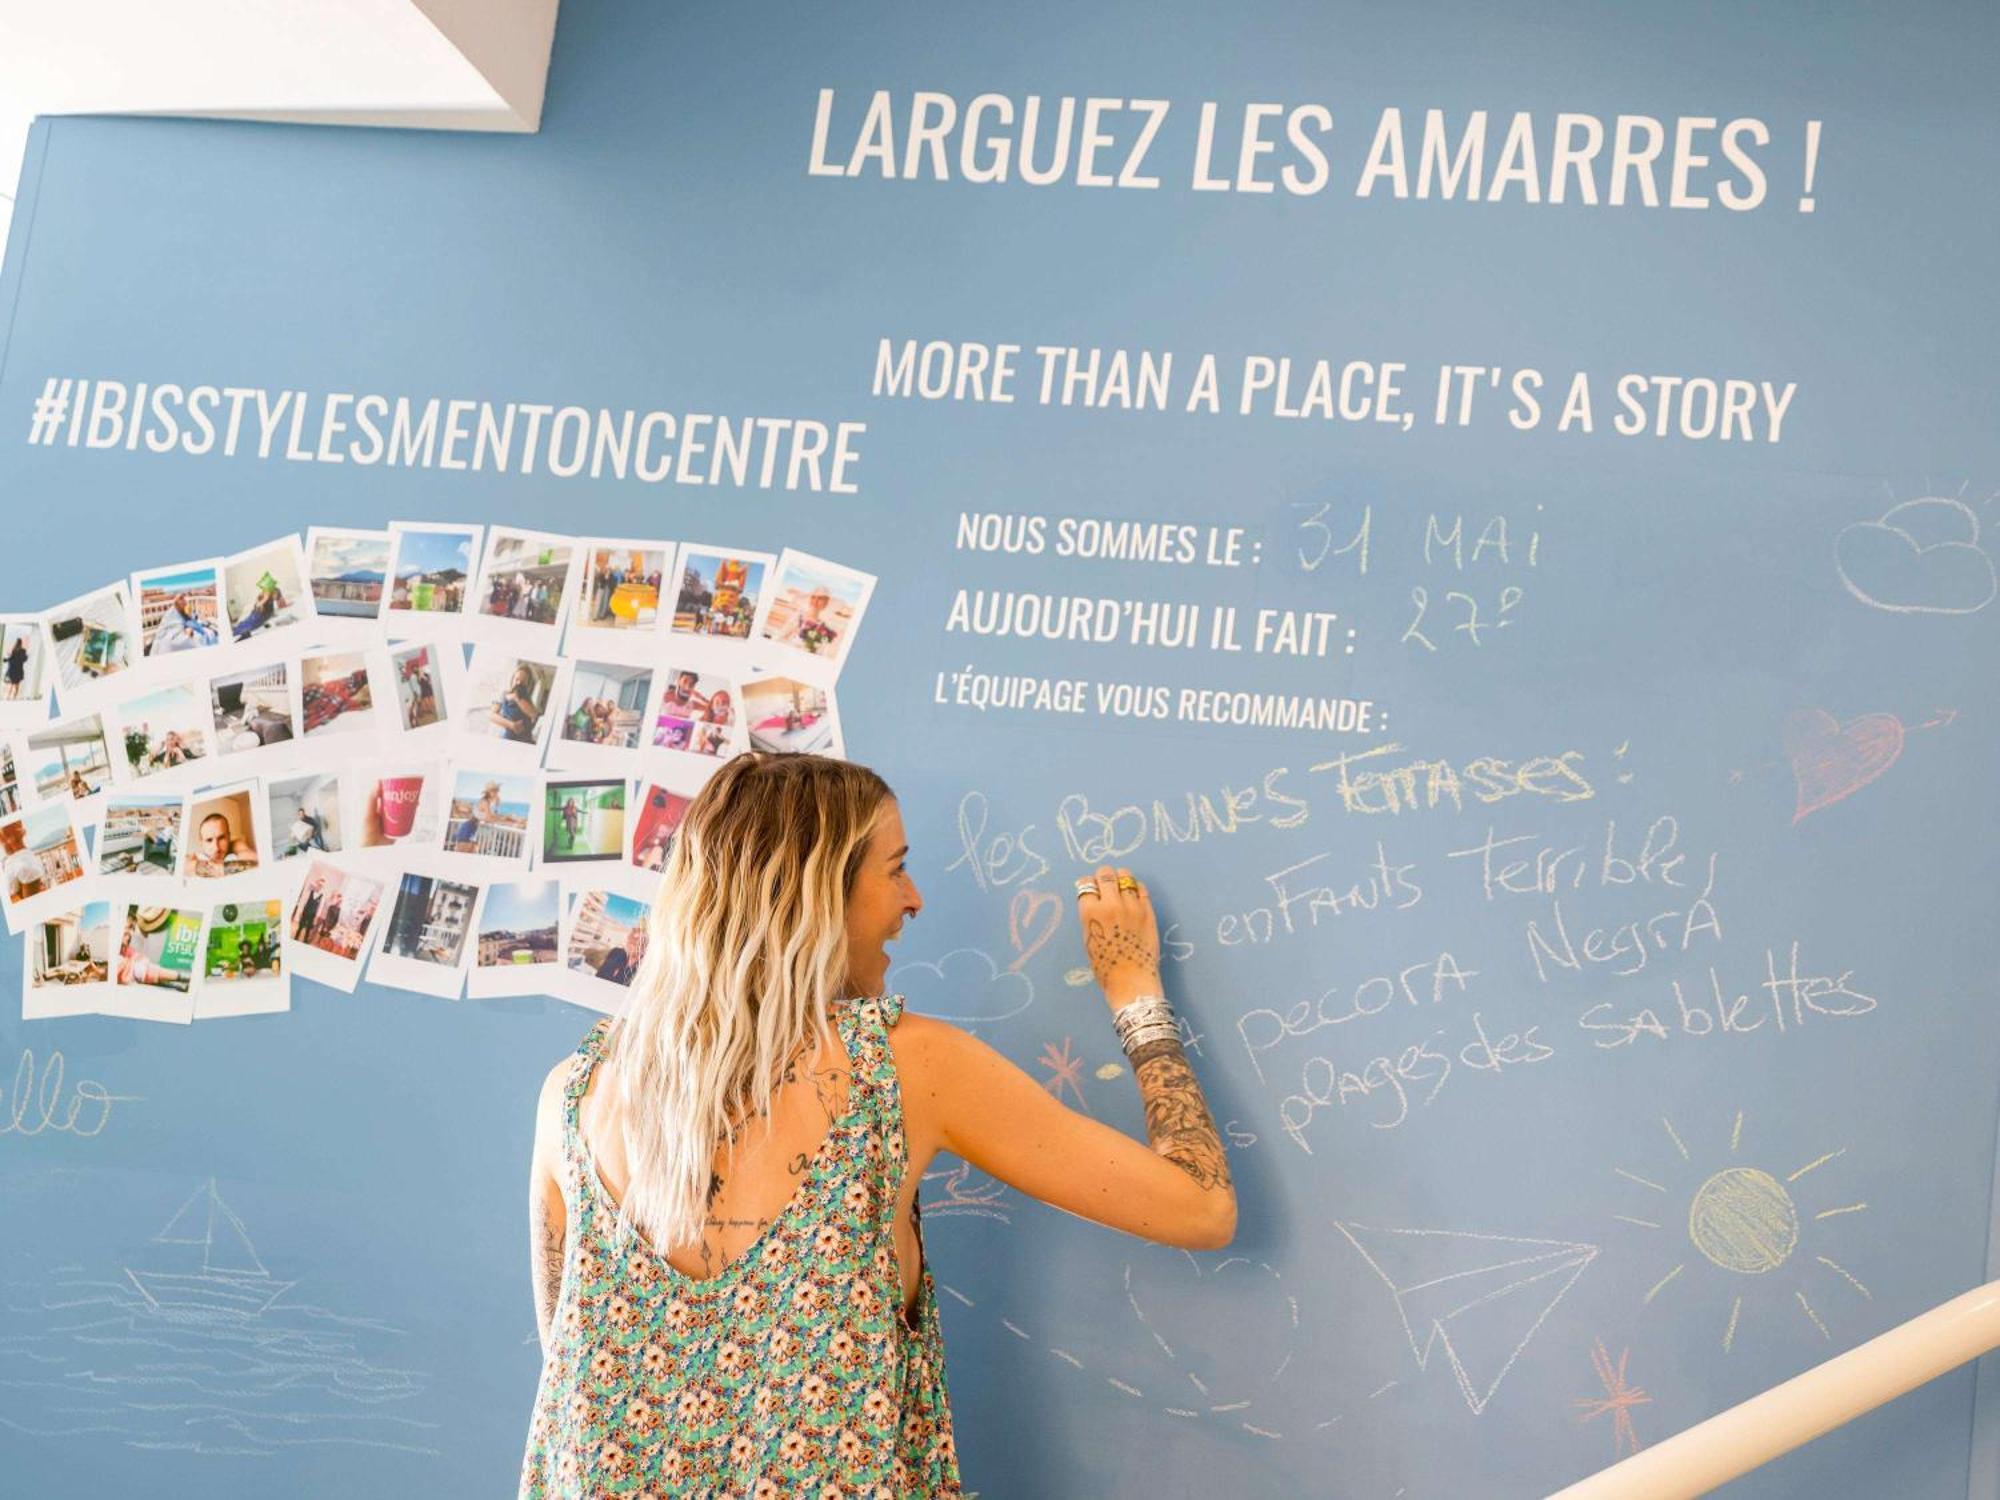 LARGUEZ LES AMARRES !
MORE THAN A PLACE, IT'S A STORY
#IBISSTYLESMENTONCENTRE
NOUS SOMMES LE : 31 MAi
AUJOURD'HUI IL FAIT : 27º
L'ÉQUIPAGE VOUS RECOMMANDE :
les BONNES TerrASSES :
enFANts Terribles
pecorA NegrA
plAges des SAblettes
enjoy
ibis